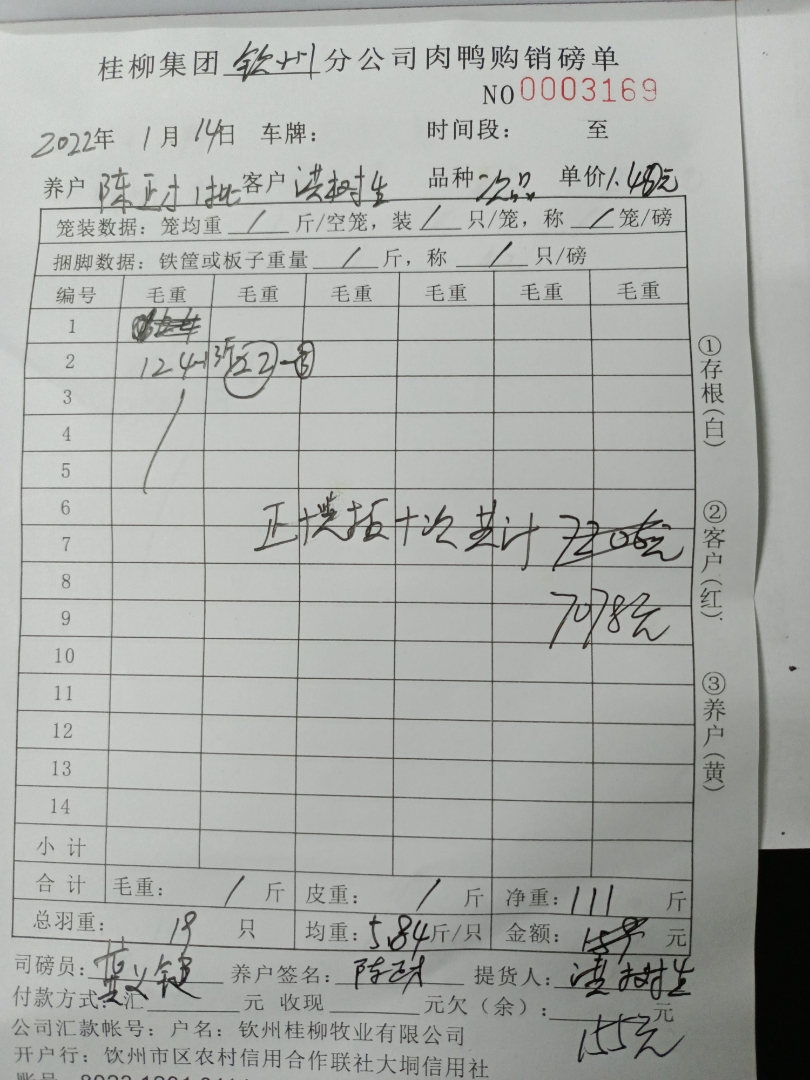 桂柳集团 钦州 分公司肉鸭购销磅单
NO 0003169
2022年 1月 14日 车牌： 时间段： 至
养户 陈正才 1批 客户 洪树生 品种 次品 单价 1.40元
笼装数据：笼均重 / 斤/空笼，装 / 只/笼，称 / 笼/磅
捆脚数据：铁筐或板子重量 / 斤，称 / 只/磅
编号 毛重 毛重 毛重 毛重 毛重 毛重
1
2 124
3
4
5
6
7
8
9
10
11
12
13
14
正 十次 共计 7206元
7078元
小 计
合 计 毛重： / 斤 皮重： / 斤 净重：111 斤
总羽重： 19 只 均重：5.84斤/只 金额： 元
司磅员： 养户签名：陈正才 提货人：洪树生
付款方式：汇 元 收现 元欠（余）： 元
155元
公司汇款帐号：户名：钦州桂柳牧业有限公司
开户行：钦州市区农村信用合作联社大垌信用社
①存根（白）
②客户（红）
③养户（黄）